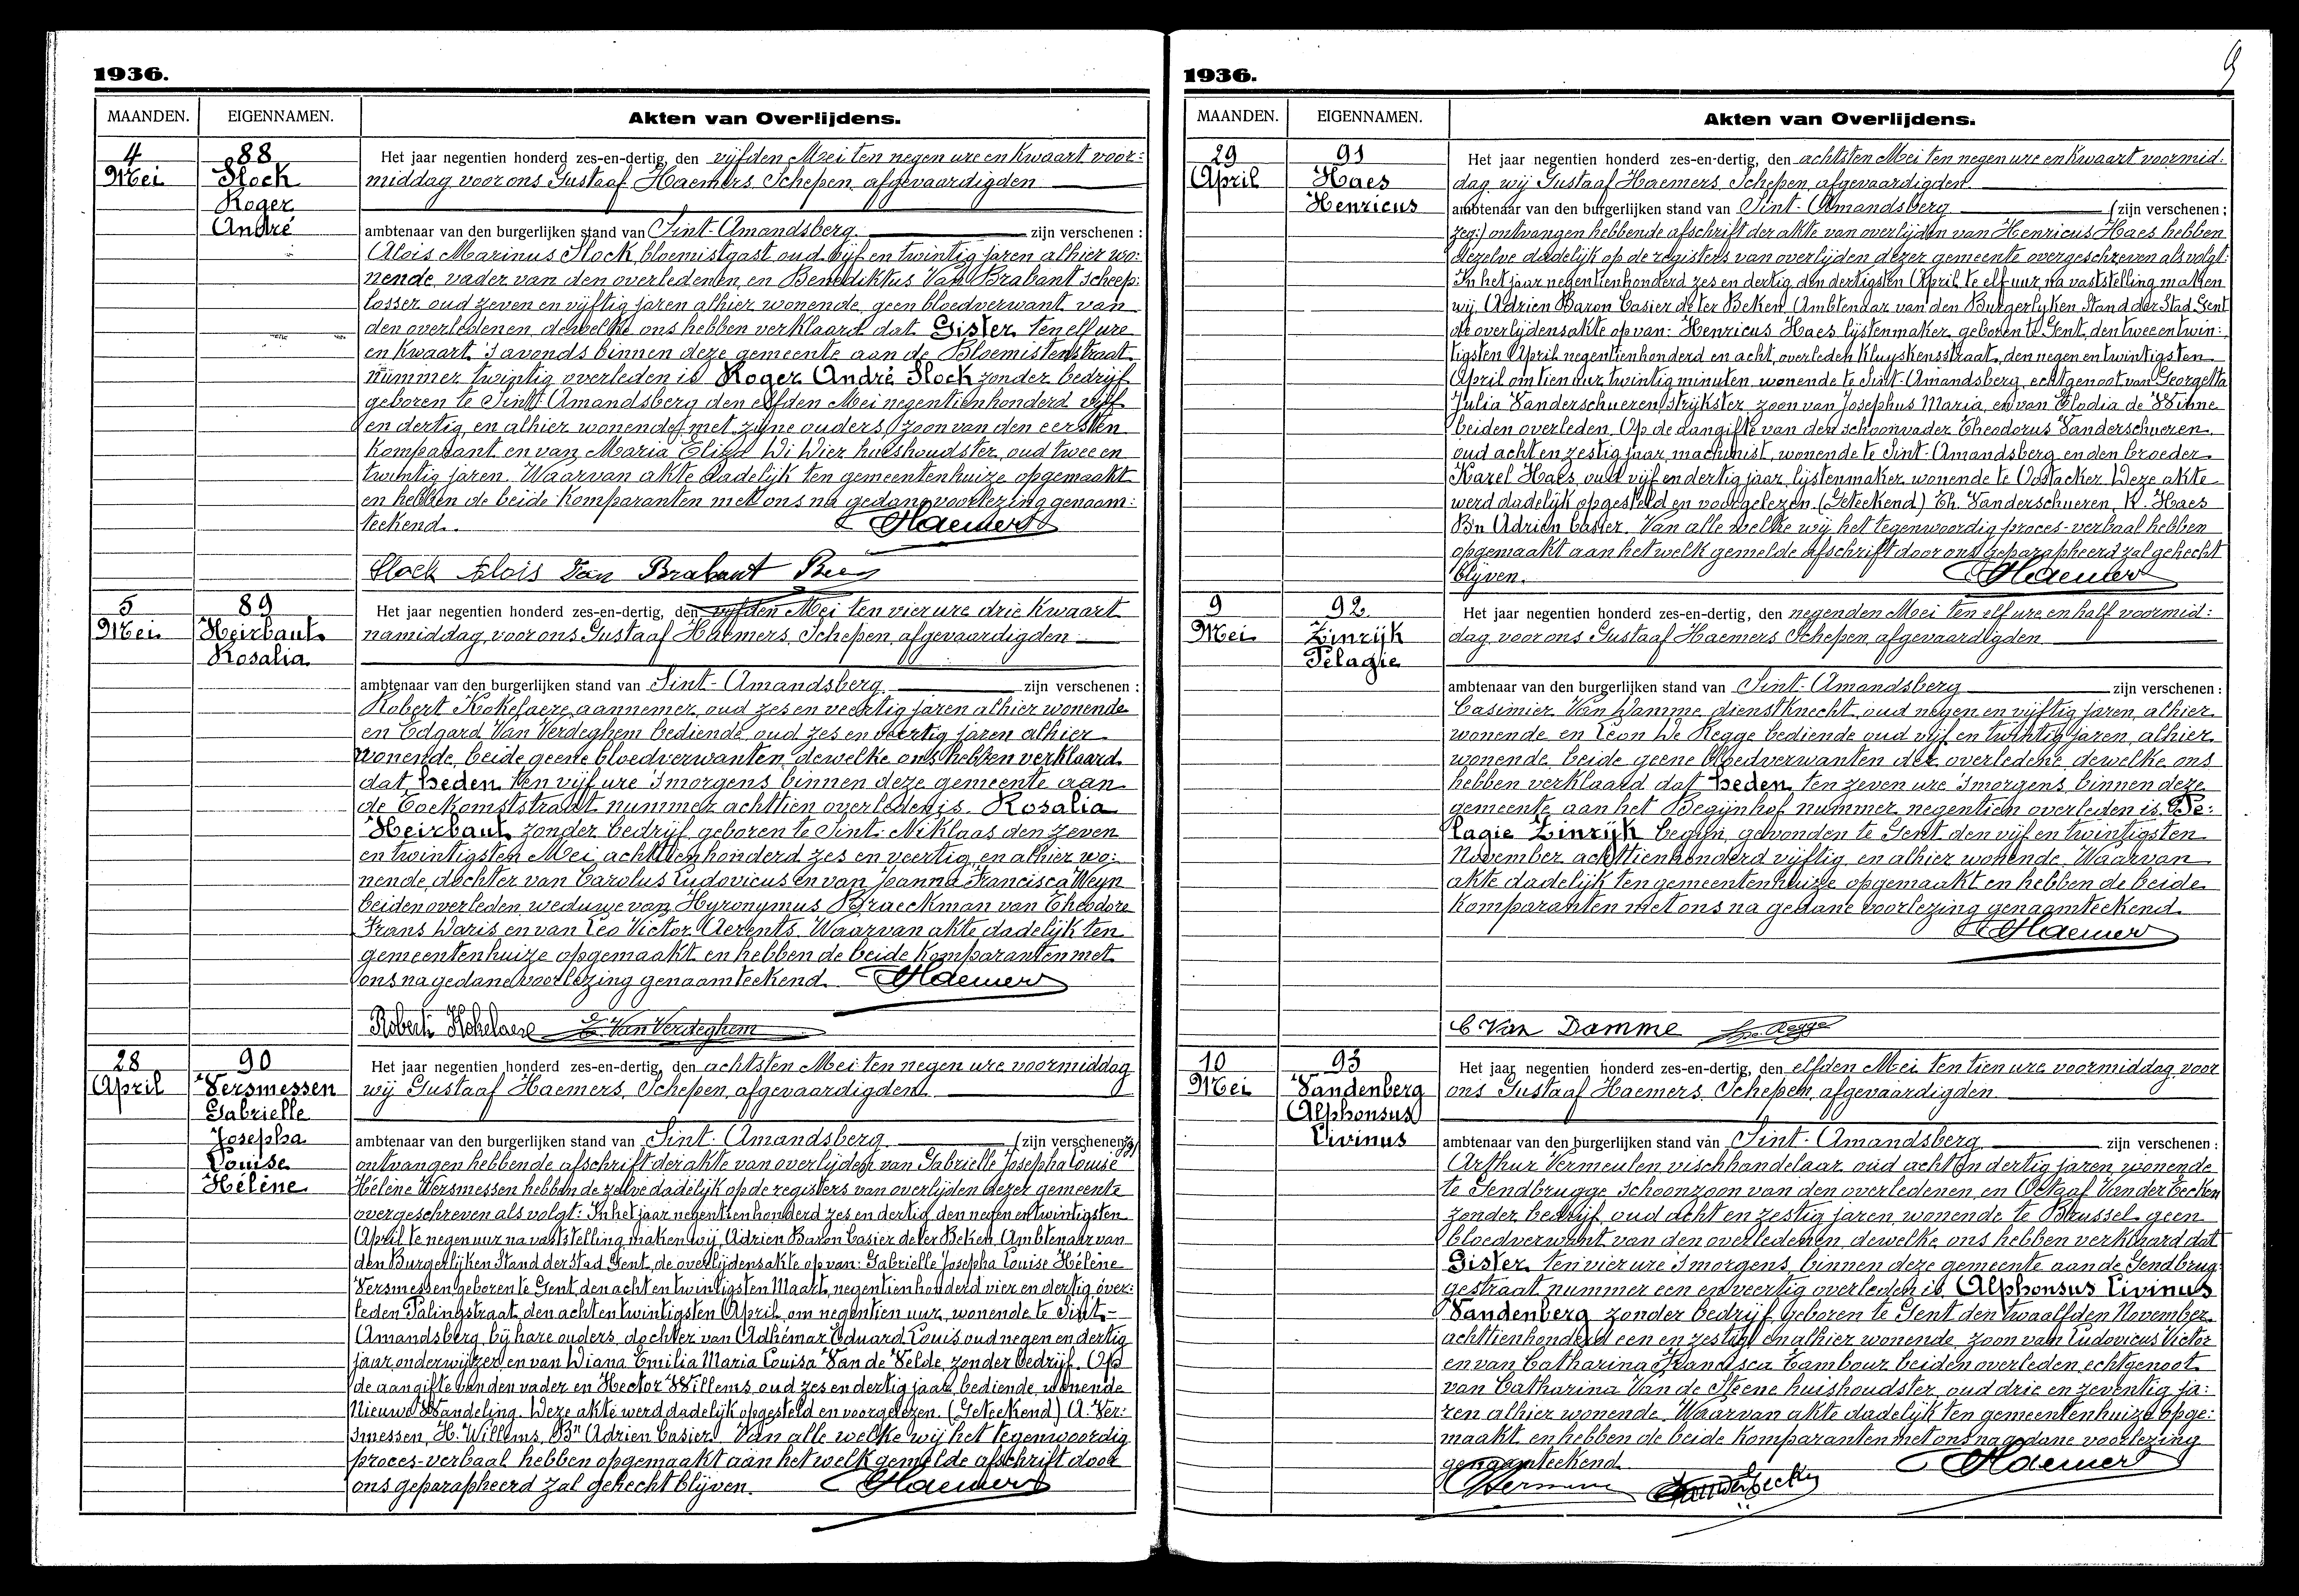 1936.
MAANDEN. EIGENNAMEN. Akten van Overlijdens.
4 Mei
88
Slock
Roger
André
Het jaar negentien honderd zes-en-dertig, den vijfden Mei ten negen ure en kwaart voor:
middag voor ons Gustaaf Haemers Schepen, afgevaardigden
ambtenaar van den burgerlijken stand van Sint-Amandsberg zijn verschenen :
Alois Marinus Slock, bloemistgast, oud vijf en twintig jaren alhier wo:
nende, vader van den overledenen, en Benediktus Van Brabant scheep:
losser oud zeven en vijftig jaren alhier wonende, geen bloedverwant van
den overledenen, dewelke ons hebben verklaard dat Gister ten elf ure
en kwaart 's avonds binnen deze gemeente aan de Bloemistenstraat
nummer twintig overleden is Roger André Slock zonder bedrijf
geboren te Sint-Amandsberg den elfden Mei negentienhonderd vijf
en dertig, en alhier wonende met zijne ouders, zoon van den eersten
komparant en van Maria Eliza De Wier huishoudster, oud twee en
twintig jaren. Waarvan akte dadelijk ten gemeentenhuize opgemaakt
en hebben de beide komparanten met ons na gedane voorlezing genaam:
teekend. Haemers
Slock Alois Van Brabant Ben
5 Mei
89
Heirbaut
Rosalia
Het jaar negentien honderd zes-en-dertig, den vijfden Mei ten vier ure drie kwaart
namiddag, voor ons Gustaaf Haemers, Schepen, afgevaardigden
ambtenaar van den burgerlijken stand van Sint-Amandsberg zijn verschenen :
Robert Kokelaere, aannemer, oud zes en veertig jaren alhier wonende
en Edgard Van Verdeghem bediende, oud zes en veertig jaren alhier
wonende, beide geene bloedverwanten, dewelke ons hebben verklaard
dat heden ten vijf ure 's morgens binnen deze gemeente aan
de Toekomststraat nummer achttien overleden is Rosalia
Heirbaut zonder bedrijf geboren te Sint-Niklaas den zeven
en twintigsten Mei achttienhonderd zes en veertig, en alhier wo:
nende, dochter van Carolus Ludovicus en van Joanna Francisca Weyn
beiden overleden, weduwe van Hyronymus Braeckman van Theodore
Frans Waris en van Leo Victor Aerents. Waarvan akte dadelijk ten
gemeentenhuize opgemaakt en hebben de beide komparanten met
ons na gedane voorlezing genaamteekend. Haemers
Robert Kokelaere E. Van Verdeghem
28 April
90
Versmessen
Gabrielle
Josepha
Louise
Hélène
Het jaar negentien honderd zes-en-dertig, den achtsten Mei ten negen ure voormiddag
wij Gustaaf Haemers, Schepen, afgevaardigden
ambtenaar van den burgerlijken stand van Sint-Amandsberg (zijn verschenen: zeg:)
ontvangen hebbende afschrift der akte van overlijden van Gabrielle Josepha Louise
Hélène Versmessen hebben de zelve dadelijk op de registers van overlijden dezer gemeente
overgeschreven als volgt: In het jaar negentienhonderd zes en dertig den negen en twintigsten
April te negen uur na vaststelling maken wij, Adrien Baron Casier de ter Beken, Ambtenaar van
den Burgerlijken Stand der Stad Gent, de overlijdensakte op van: Gabrielle Josepha Louise Hélène
Versmessen geboren te Gent, den acht en twintigsten Maart, negentienhonderd vier en dertig, over:
leden Palingstraat, den acht en twintigsten April, om negentien uur, wonende te Sint-
Amandsberg, bij hare ouders, dochter van Adhémar Eduard Louis, oud negen en dertig
jaar, onderwijzer, en van Diana Emilia Maria Louisa Van de Velde, zonder bedrijf. Op
de aangifte van den vader en Hector Willems, oud zes en dertig jaar, bediende, wonende
Nieuwe Wandeling. Deze akte werd dadelijk opgesteld en voorgelezen. (Geteekend) A. Ver:
smessen, H. Willems, Bn Adrien Casier. Van alle welke wij het tegenwoordig
proces-verbaal hebben opgemaakt aan het welk gemelde afschrift door
ons geparapheerd zal gehecht blijven. Haemers
9
1936.
MAANDEN. EIGENNAMEN. Akten van Overlijdens.
29 April
91
Haes
Henricus
Het jaar negentien honderd zes-en-dertig, den achtsten Mei ten negen ure en kwaart voormid:
dag wij Gustaaf Haemers, Schepen, afgevaardigden
ambtenaar van den burgerlijken stand van Sint-Amandsberg (zijn verschenen :
zeg:) ontvangen hebbende afschrift der akte van overlijden van Henricus Haes hebben
dezelve dadelijk op de registers van overlijden dezer gemeente overgeschreven als volgt:
In het jaar negentienhonderd zes en dertig, den dertigsten April te elf uur, na vaststelling maken
wij, Adrien Baron Casier de ter Beken, Ambtenaar van den Burgerlyken Stand der Stad Gent
de overlijdensakte op van: Henricus Haes lijstenmaker, geboren te Gent, den twee en twin:
tigsten April negentienhonderd en acht, overleden Kluyskensstraat, den negen en twintigsten
April om tien uur twintig minuten, wonende te Sint-Amandsberg, echtgenoot van Georgetta
Julia Vanderschueren, strijkster, zoon van Josephus Maria, en van Elodia de Winne
beiden overleden. Op de aangifte van den schoonvader Theodorus Vanderschueren,
oud acht en zestig jaar, machinist, wonende te Sint-Amandsberg en den broeder
Karel Haes, oud vijf en dertig jaar, lijstenmaker wonende te Oostacker. Deze akte
werd dadelijk opgesteld en voorgelezen. (Geteekend) Th. Vanderschueren, K. Haes
Bn Adrien Casier. Van alle welke wij het tegenwoordig proces-verbaal hebben
opgemaakt aan het welk gemelde afschrift door ons geparapheerd zal gehecht
blijven. Haemers
9 Mei
92
Zinzijk
Pelagie
Het jaar negentien honderd zes-en-dertig, den negenden Mei ten elf ure en half voormid:
dag voor ons Gustaaf Haemers Schepen, afgevaardigden
ambtenaar van den burgerlijken stand van Sint-Amandsberg zijn verschenen :
Casimier Van Damme, dienstknecht, oud negen en vijftig jaren, alhier
wonende en Leon De Regge bediende oud vijf en twintig jaren, alhier
wonende, beide geene bloedverwanten der overledene, dewelke ons
hebben verklaard dat heden ten zeven ure 's morgens binnen deze
gemeente aan het Begijnhof nummer negentien overleden is Pe:
lagie Zinzijk begijn, gevonden te Gent den vijf en twintigsten
November achttienhonderd vijftig, en alhier wonende. Waarvan
akte dadelijk ten gemeentenhuize opgemaakt en hebben de beide
komparanten met ons na gedane voorlezing genaamteekend.
Haemers
C Van Damme De Regge
10 Mei
93
Vandenberg
Alphonsus
Livinus
Het jaar negentien honderd zes-en-dertig, den elfden Mei ten tien ure voormiddag voor
ons Gustaaf Haemers, Schepen, afgevaardigden
ambtenaar van den burgerlijken stand van Sint-Amandsberg zijn verschenen :
Arthur Vermeulen vischhandelaar, oud acht en dertig jaren, wonende
te Gendbrugge schoonzoon van den overledenen, en Octaaf Van der Eecken
zonder bedrijf, oud acht en zestig jaren, wonende te Brussel geen
bloedverwant van den overledenen, dewelke ons hebben verklaard dat
Gister ten vier ure 's morgens, binnen deze gemeente aan de Gendbrug
gestraat nummer een en veertig overleden is Alphonsus Livinus
Vandenberg zonder bedrijf geboren te Gent den twaalfden November
achttienhonderd een en zestig en alhier wonende, zoon van Ludovicus Victor
en van Catharina Francisca Tambour beiden overleden, echtgenoot
van Catharina Van de Steene huishoudster, oud drie en zeventig ja:
ren alhier wonende. Waarvan akte dadelijk ten gemeentenhuize opge:
maakt en hebben de beide komparanten met ons na gedane voorlezing
genaamteekend. Haemers